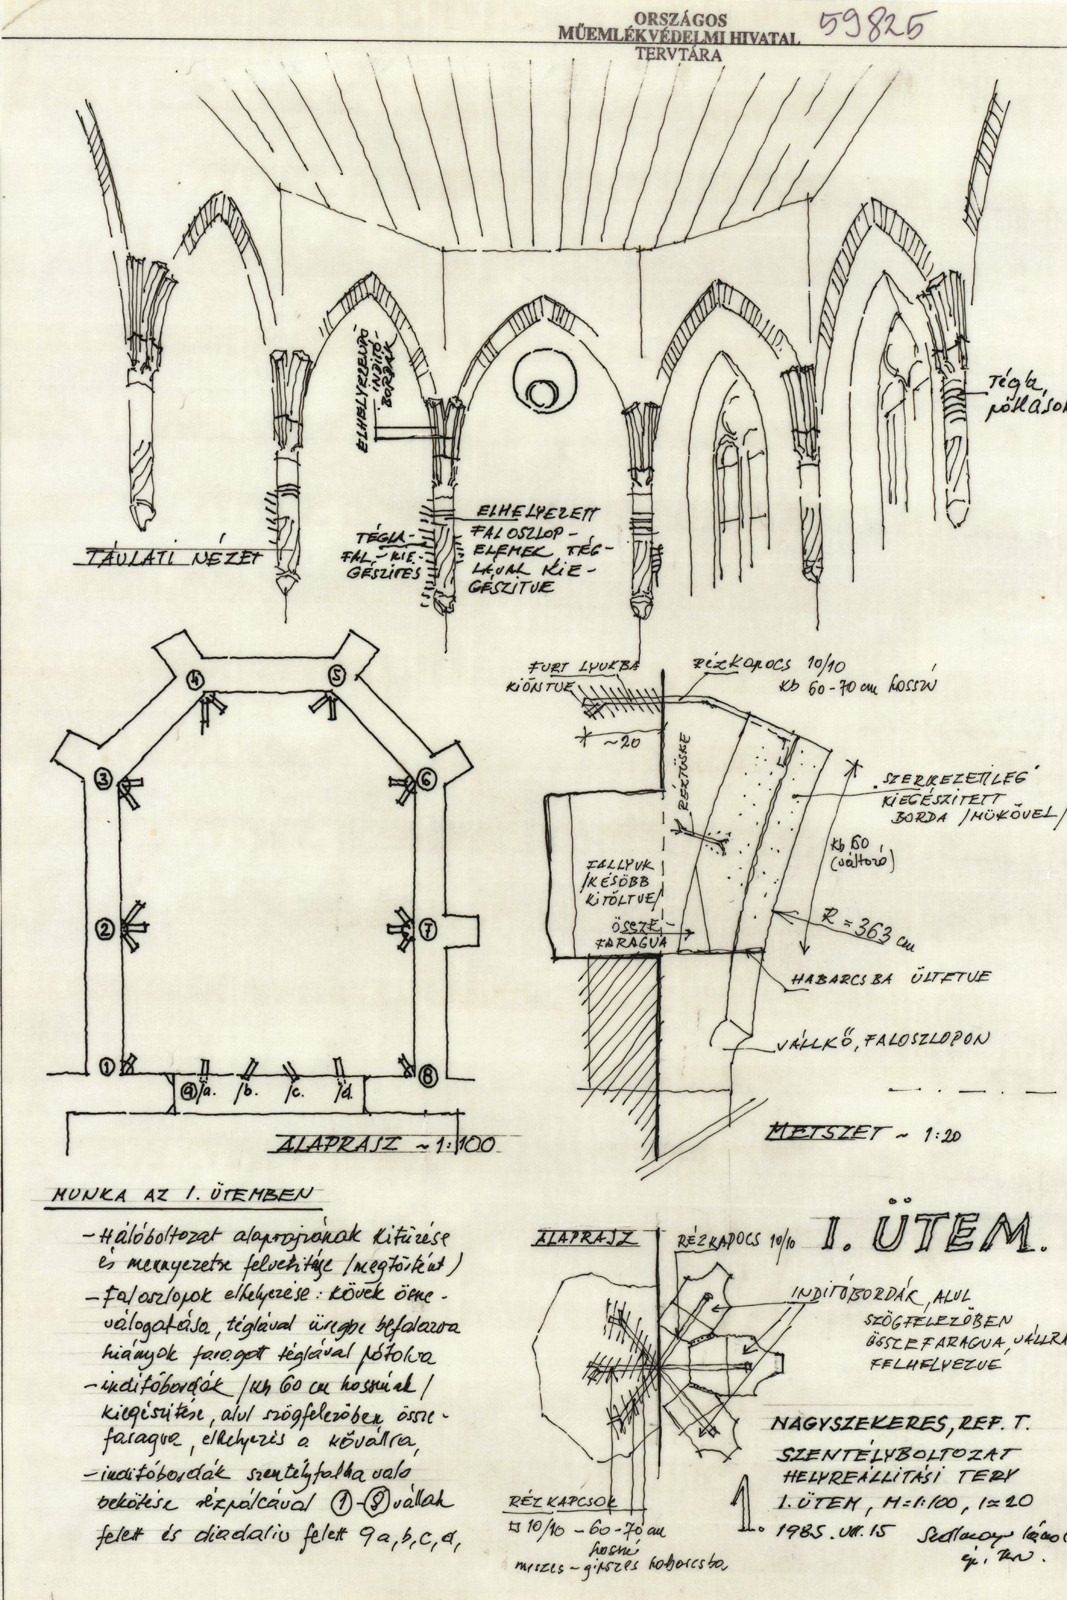 ORSZÁGOS
MŰEMLÉKVÉDELMI HIVATAL
TERVTÁRA
59825
ELHELYEZENDŐ
INDÍTÓ-
BORDÁK
Tégla
pótlások
TÁVLATI NÉZET
TÉGLA-
FAL-KIE-
GÉSZÍTÉS
ELHELYEZETT
FALOSZLOP-
ELEMEK TÉG-
LÁVAL KIE-
GÉSZÍTVE
4
5
3
6
2
7
1
8
9/a.
/b.
/c.
/d.
ALAPRAJZ ~ 1:100
FURT LYUKBA
KIÖNTVE
RÉZKAPOCS 10/10
kb 60-70 cm hosszú
~20
RÉZTÜSKE
SZERKEZETILEG
KIEGÉSZÍTETT
BORDA /MŰKŐVEL/
kb 60
(változó)
FALLYUK
/KÉSŐBB
KITÖLTVE/
ÖSSZE-
FARAGVA
R = 363 cm
HABARCSBA ÜLTETVE
VÁLLKŐ, FALOSZLOPON
METSZET ~ 1:20
MUNKA AZ I. ÜTEMBEN
- Hálóboltozat alaprajzának kitűzése
és mennyezetre felvetítése /megtörtént/
- Faloszlopok elhelyezése: kövek össze-
válogatása, téglával üregbe befalazva
hiányok faragott téglával pótolva
- indítóbordák /kb 60 cm hosszúak/
kiegészítése, alul szögfelezőben össze-
faragva, elhelyezés a kővállra,
- indítóbordák szentélyfalba való
bekötése rézpálcával 1-8 vállak
felett és diadalív felett 9a,b,c,d,
ALAPRAJZ
RÉZKAPOCS 10/10
I. ÜTEM.
INDÍTÓBORDÁK, ALUL
SZÖGFELEZŐBEN
ÖSSZEFARAGVA, VÁLLRA
FELHELYEZVE
RÉZKAPCSOK
10/10 - 60-70 cm
hosszú
meszes-gipszes habarcsba
1.
NAGYSZEKERES, REF. T.
SZENTÉLYBOLTOZAT
HELYREÁLLÍTÁSI TERV
I. ÜTEM, M=1:100, 1:20
1985. VII. 15